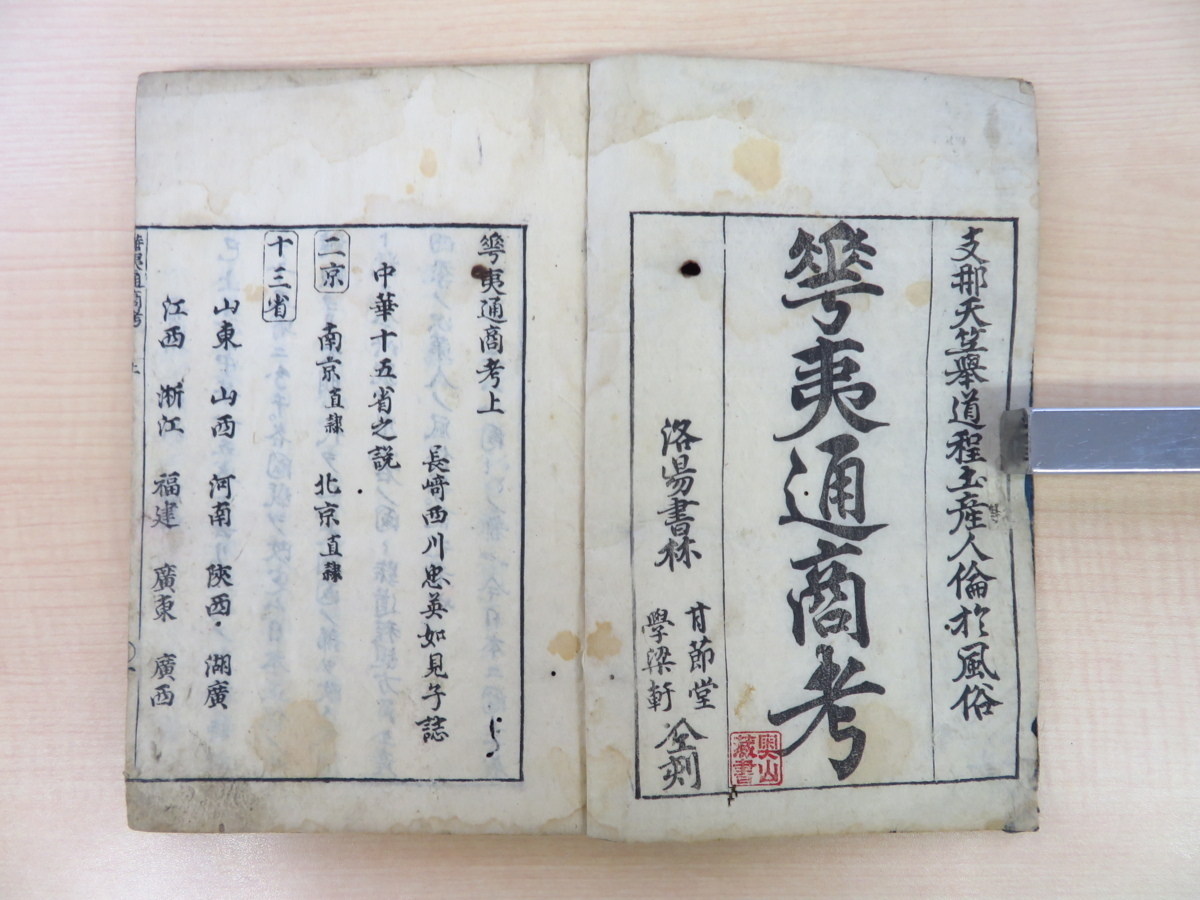 支那天竺擧道程土産人倫於風俗
華夷通商考
洛昜書林
甘節堂
學梁軒
仝刻
奥山
藏書
華夷通商考上
長﨑西川忠英如見子誌
中華十五省之説
二京 南京直隸 北京直隸
十三省
山東 山西 河南 陝西 湖廣
江西 淅江 福建 廣東 廣西